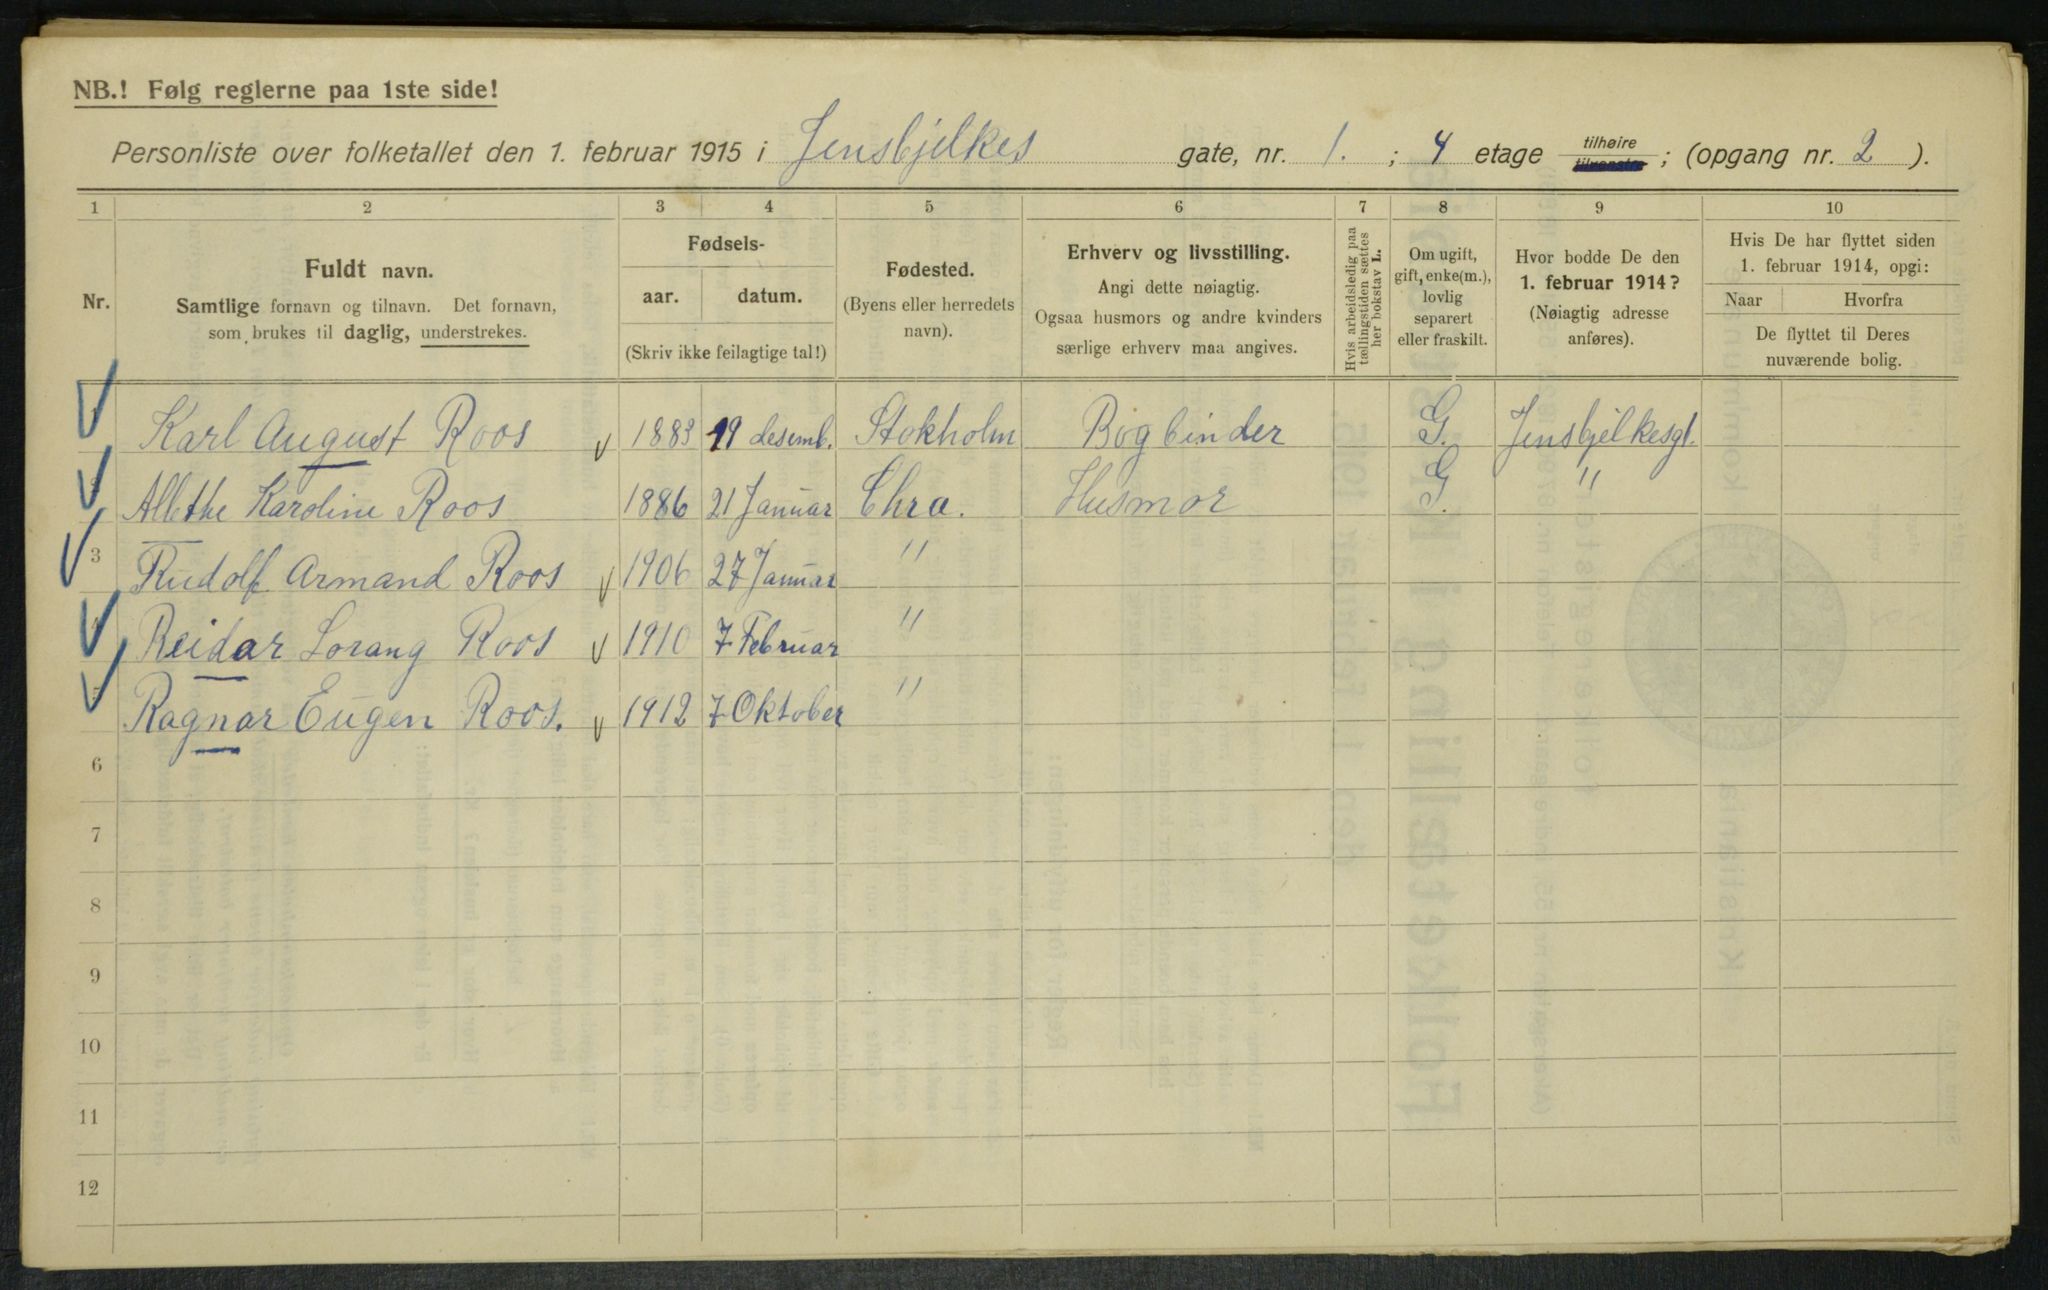 NB.! Følg reglerne paa 1ste side!
Personliste over folketallet den 1. februar 1915 i Jensbjelkes gate, nr. 1. ; 4 etage tilhøire tilvenstre ; (opgang nr. 2 ).
1 2 3 4 5 6 7 8 9 10
Nr.
Fuldt navn.
Samtlige fornavn og tilnavn. Det fornavn,
som brukes til daglig, understrekes.
Fødsels-
aar. datum.
(Skriv ikke feilagtige tal!)
Fødested.
(Byens eller herredets
navn).
Erhverv og livsstilling.
Angi dette nøiagtig.
Ogsaa husmors og andre kvinders
særlige erhverv maa angives.
Hvis arbeidsledig paa
tællingstiden sættes
her bokstav L.
Om ugift,
gift, enke(m.),
lovlig
separert
eller fraskilt.
Hvor bodde De den
1. februar 1914?
(Nøiagtig adresse
anføres).
Hvis De har flyttet siden
1. februar 1914, opgi:
Naar Hvorfra
De flyttet til Deres
nuværende bolig.
Karl August Roos 1883 19 desemb. Stokholm Bogbinder G. Jensbjelkesgt.
Albthe Karoline Roos 1886 21 Januar Chra. Husmor G. "
3 Rudolf Armand Roos 1906 27 Januar "
Reidar Lorang Roos 1910 7 Februar "
5 Ragnar Eugen Roos. 1912 7 Oktober "
6
7
8
9
10
11
12